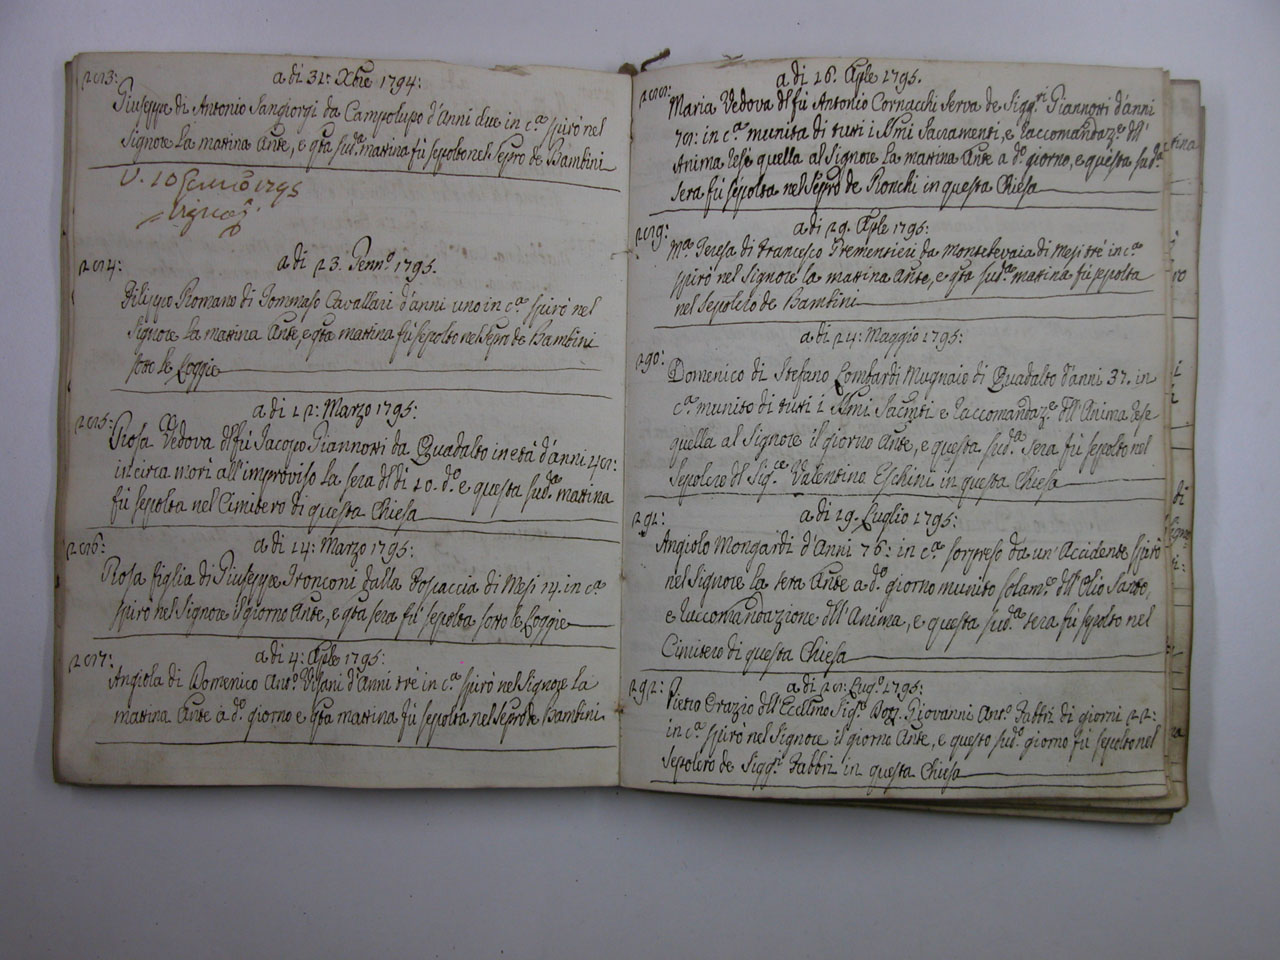 283: a di 31: Xbre 1794:
Giuseppe di Antonio Sangiorgi da Campolupo d'Anni due in c.a spirò nel
Signore la mattina Ante, e qta sud.a mattina fù sepolto nel Sepro de Bambini
V. 10 Genn.o 1795
284: a di 23. Genn.o 1795.
Filippo Romano di Tommaso Cavallari d'anni uno in c.a spirò nel
Signore la mattina Ante, e qta mattina fù sepolto nel Sepro de Bambini
sotto le Loggie
285: a di 12: Marzo 1795:
Rosa Vedova del fù Jacopo Giannotti da Quadalto in età d'anni 48:
in circa morì all'improviso la sera del dì 10. d.o e questa sud.a mattina
fù sepolta nel Cimitero di questa Chiesa
286: a di 14: Marzo 1795:
Rosa figlia di Giuseppe Tronconi dalla Boscaccia di Mesi 14. in c.a
spirò nel Signore il giorno Ante, e qta sera fù sepolta sotto le Loggie
287: a di 4: Aple 1795:
Angiola di Domenico Ant.o Visani d'Anni trè in c.a spirò nel Signore la
mattina Ante a d.o giorno e qta mattina fù sepolta nel Sepro de Bambini
288: a di 16. Aple 1795.
Maria Vedova del fù Antonio Cornacchi Serva de Sigg.ri Giannotti d'anni
78: in c.a munita di tutti i SSmi Sacramenti, e Raccomandaz.e dell'
Anima rese quella al Signore la mattina Ante a d.o giorno, e questa sud.a
sera fù sepolta nel Sepro de Ronchi in questa Chiesa
289: a di 29. Aple 1795:
M.a Teresa di Francesco Trementieri da Montelevaia di Mesi trè in c.a
spirò nel Signore la mattina Ante, e qta sud.a mattina fù sepolta
nel Sepolcro de Bambini
a di 24: Maggio 1795:
290: Domenico di Stefano Lombardi Mugnaio di Quadalto d'anni 37. in
c.a munito di tutti i SSmi Sacnti e Raccomandaz.e dell'Anima rese
quella al Signore il giorno Ante, e questa sud.a sera fù sepolto nel
Sepolcro del Sig.re Valentino Eschini in questa Chiesa
291: a di 19. Luglio 1795:
Angiolo Mongardi d'Anni 76: in c.a sorpreso da un'Accidente spirò
nel Signore la sera Ante a d.o giorno munito solam.e dell'Olio Santo,
e Raccomandazione dell'Anima, e questa sud.a sera fù sepolto nel
Cimitero di questa Chiesa
292: a di 28: Lug.o 1795:
Pietro Orazio dell'Eccellmo Sig.re Dott. Giovanni Ant.o Fabbri di giorni 22:
in c.a spirò nel Signore il giorno Ante, e questo sud.o giorno fù sepolto nel
Sepolcro de Sigg.ri Fabbri in questa Chiesa